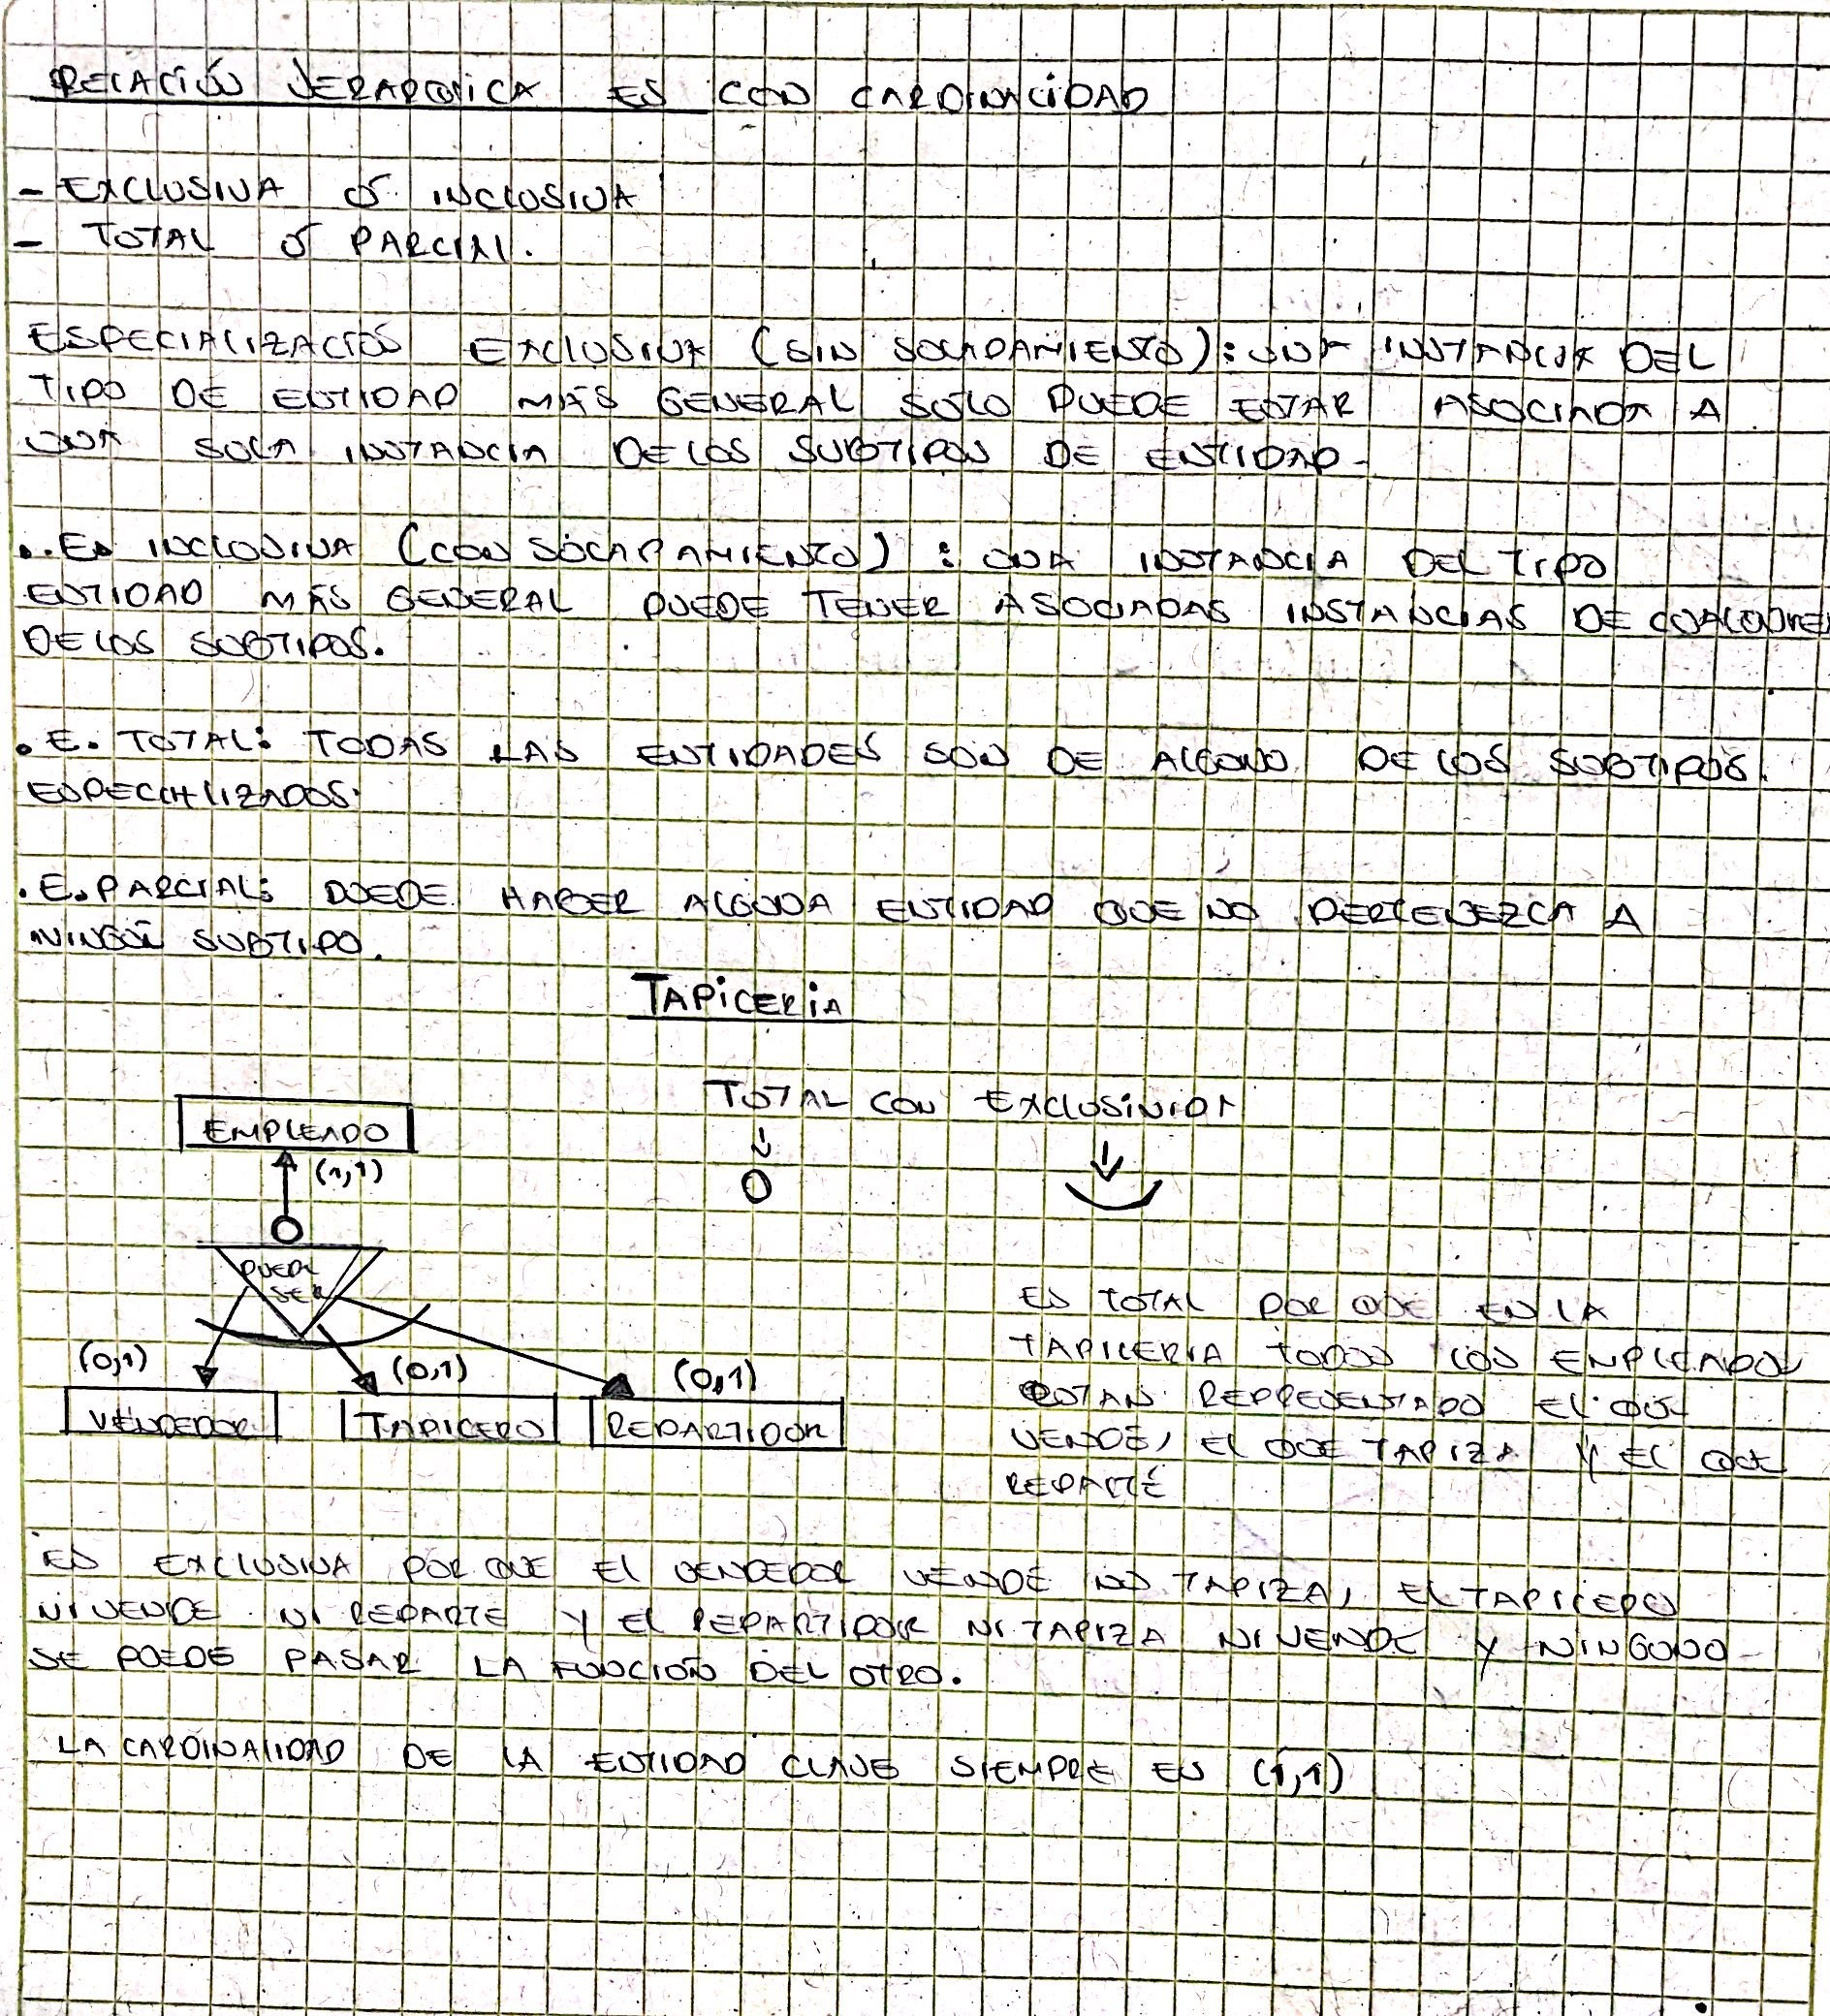 RELACIÓN JERARQUICA ES CON CARDINALIDAD
- EXCLUSIVA Ó INCLUSIVA
- TOTAL Ó PARCIAL.
ESPECIALIZACIÓN EXCLUSIVA (SIN SOLAPAMIENTO): UNA INSTANCIA DEL
TIPO DE ENTIDAD MÁS GENERAL SOLO PUEDE ESTAR ASOCIADA A
UNA SOLA INSTANCIA DE LOS SUBTIPOS DE ENTIDAD.
. . ES INCLUSIVA (CON SOLAPAMIENTO) : UNA INSTANCIA DEL TIPO
ENTIDAD MÁS GENERAL PUEDE TENER ASOCIADAS INSTANCIAS DE CUALQUIE
DE LOS SUBTIPOS.
. E. TOTAL: TODAS LAS ENTIDADES SON DE ALGUNO DE LOS SUBTIPOS
ESPECIALIZADOS.
. E. PARCIAL: PUEDE HABER ALGUNA ENTIDAD QUE NO PERTENEZCA A
NINGÚN SUBTIPO.
TAPICERIA
TOTAL CON EXCLUSIVIDA
EMPLEADO
(1,1)
PUEDE
SER
(0,1) (0,1) (0,1)
VENDEDOR TAPICERO REPARTIDOR
ES TOTAL POR QUE EN LA
TAPICERIA TODOS LOS EMPLEADOS
ESTAN REPRESENTADO EL QUE
VENDE, EL QUE TAPIZA Y EL QUE
REPARTE
ES EXCLUSIVA POR QUE EL VENDEDOR VENDE NO TAPIZA, EL TAPICERO
NI VENDE NI REPARTE Y EL REPARTIDOR NI TAPIZA NI VENDE Y NINGUNO
SE PUEDE PASAR LA FUNCIÓN DEL OTRO.
LA CARDINALIDAD DE LA ENTIDAD CLAVE SIEMPRE ES (1,1)